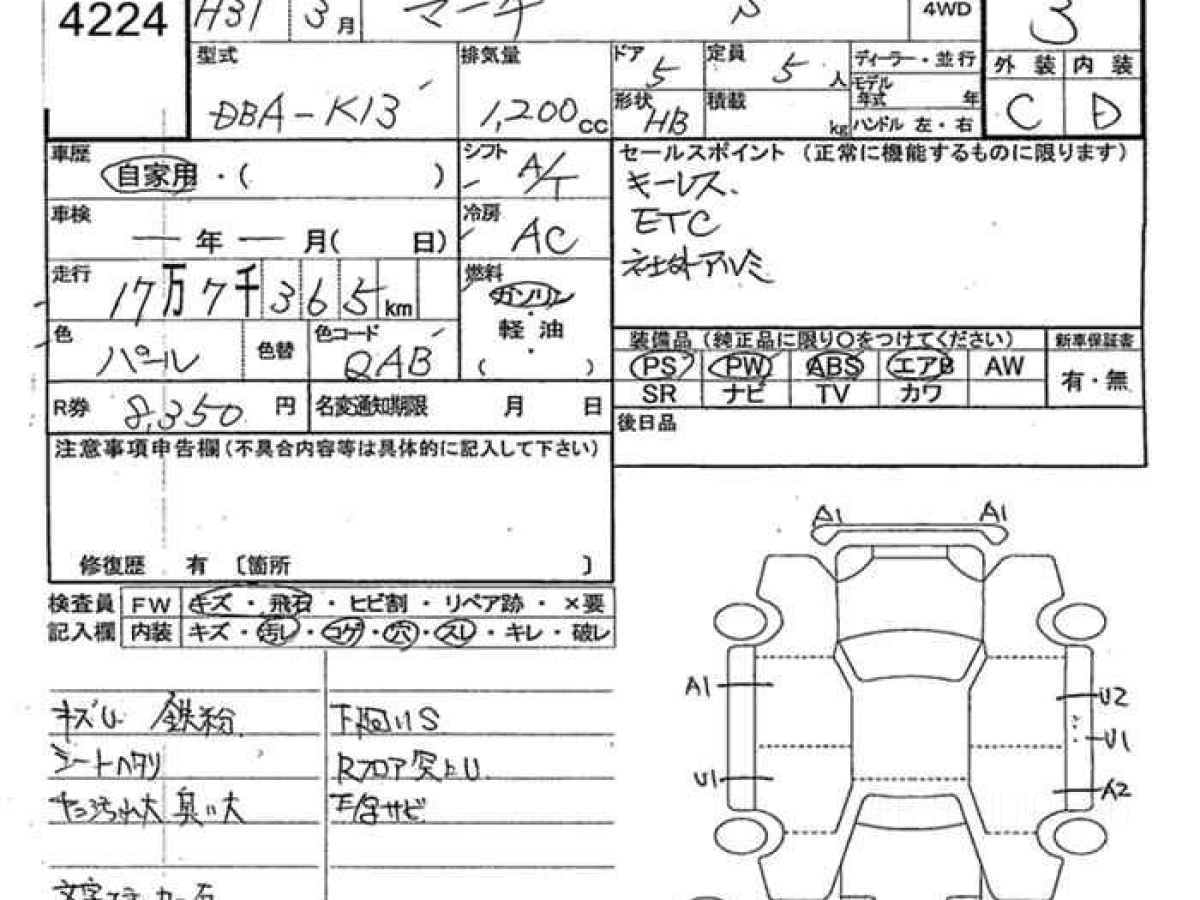 4224 H31 3月 マーチ S 4WD 3
型式 DBA-K13
排気量 1,200cc
ドア 5 定員 5人
ディーラー・並行
モデル年式 年
形状 HB 積載 kg ハンドル 左・右
外装 内装
C D
車歴 自家用・( )
シフト A/T
車検 ー年ー月( 日)
冷房 AC
走行 17万7千365km
燃料 ガソリン・軽油・( )
色 パール 色替 色コード QAB
R券 8,350円 名変通知期限 月 日
セールスポイント (正常に機能するものに限ります)
キーレス.
ETC
社外アルミ
装備品(純正品に限り○をつけてください) 新車保証書
PS PW ABS エアB AW 有・無
SR ナビ TV カワ
後日品
注意事項申告欄(不具合内容等は具体的に記入して下さい)
修復歴 有〔箇所 〕
検査員 FW キズ・飛石・ヒビ割・リペア跡・×要
記入欄 内装 キズ・汚レ・コゲ・穴・スレ・キレ・破レ
キズU. 鉄粉.
シートヘタリ
大 臭い大
下回りS
Rフロア突上U.
下廻サビ
A1 A1
A1 U2
U1
U1 A2